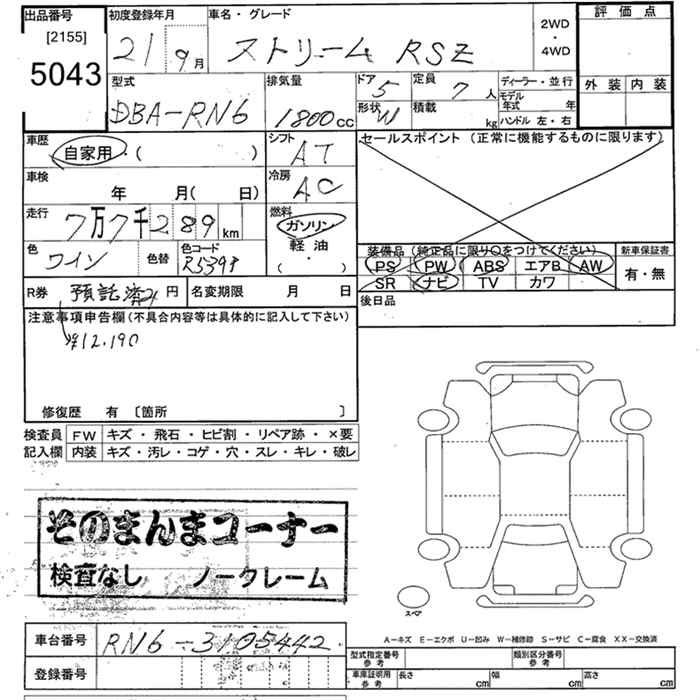 出品番号 [2155] 5043
初度登録年月 21 9月
車名・グレード ストリーム RSZ
2WD・4WD
評価点
外装 内装
型式 DBA-RN6
排気量 1800cc
ドア 5
形状 W
定員 7人
積載 kg
ディーラー・並行
モデル年式 年
ハンドル 左・右
車歴 自家用・( )
シフト AT
セールスポイント (正常に機能するものに限ります)
車検 年 月( 日)
冷房 AC
走行 7万7千289km
燃料 ガソリン 軽油 ( ・ )
色 ワイン 色替
色コード R539P
装備品 (純正品に限り○をつけてください)
PS PW ABS エアB AW
SR ナビ TV カワ
新車保証書 有・無
R券 預託済み 円
名変期限 月 日
後日品
注意事項申告欄(不具合内容等は具体的に記入して下さい)
¥12,190
修復歴 有 〔箇所 〕
検査員記入欄
FW キズ・飛石・ヒビ割・リペア跡・×要
内装 キズ・汚レ・コゲ・穴・スレ・キレ・破レ
そのまんまコーナー
検査なし ノークレーム
スペア
A-キズ E-エクボ U-凹み W-補修跡 S-サビ C-腐食 XX-交換済
車台番号 RN6-3105442
登録番号
型式指定番号 参考
類別区分番号 参考
車庫証明用 参考 長さ cm 幅 cm 高さ cm